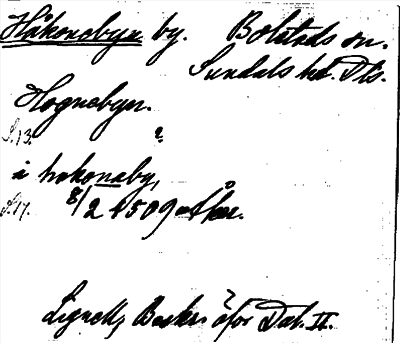 Håkonabyn by. Bolstads sn.
Sundals hd. Dls.
Hognebyn.
S. 13. ?
i hokonaby,
S. 17. 8/2 1509 afskr.
Lignell, Beskr. öfver Dal. II.